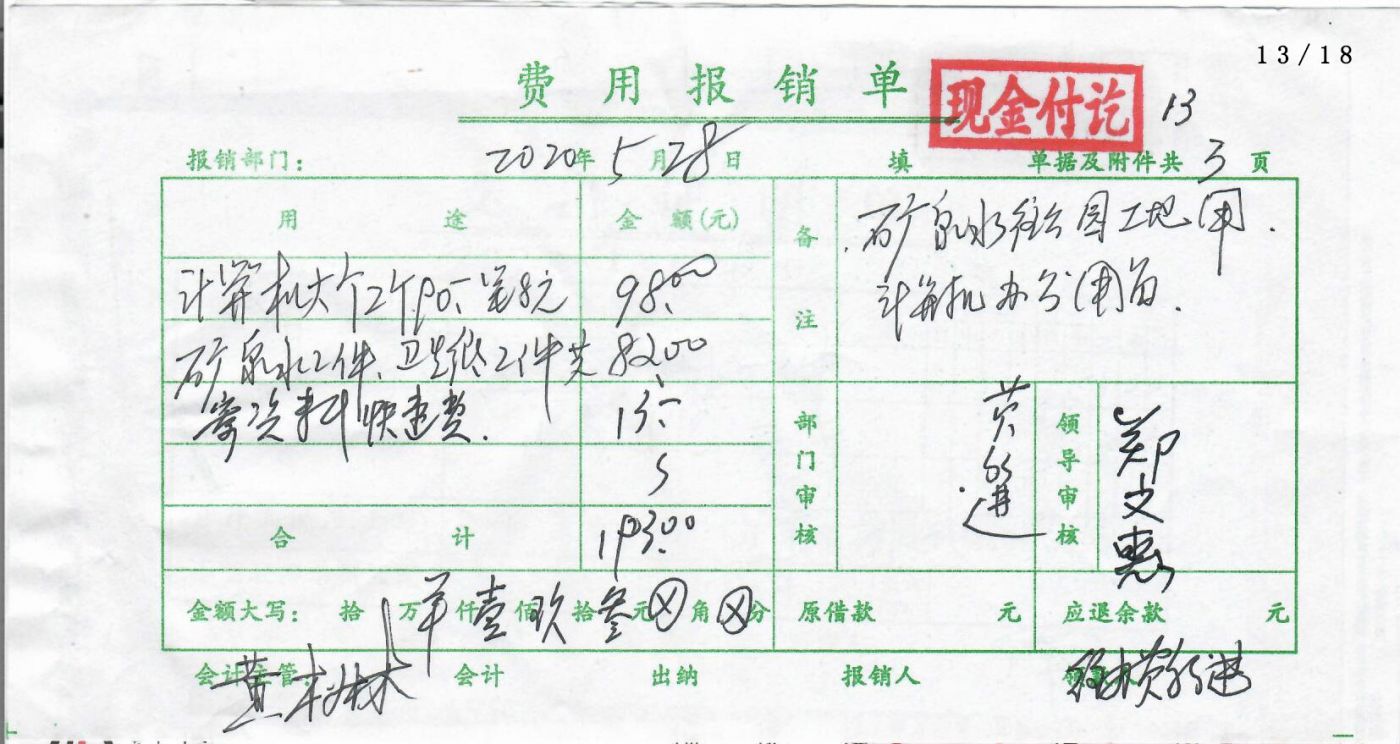 13/18
费用报销单
现金付讫
13
报销部门: 2020年5月28日 填 单据及附件共3页
用途 金额(元) 备注
矿泉水 公园工地用.
计算机办公用
计算机大个2个90.- 笔8元 98.00
矿泉水2件、卫生纸2件共 82.00
寄资料快递费. 13.-
合计 193.00
部门审核
领导审核 郑文惠
金额大写: 拾万 仟壹佰玖拾叁元⊗角⊗分 原借款 元 应退余款 元
会计主管 会计 出纳 报销人